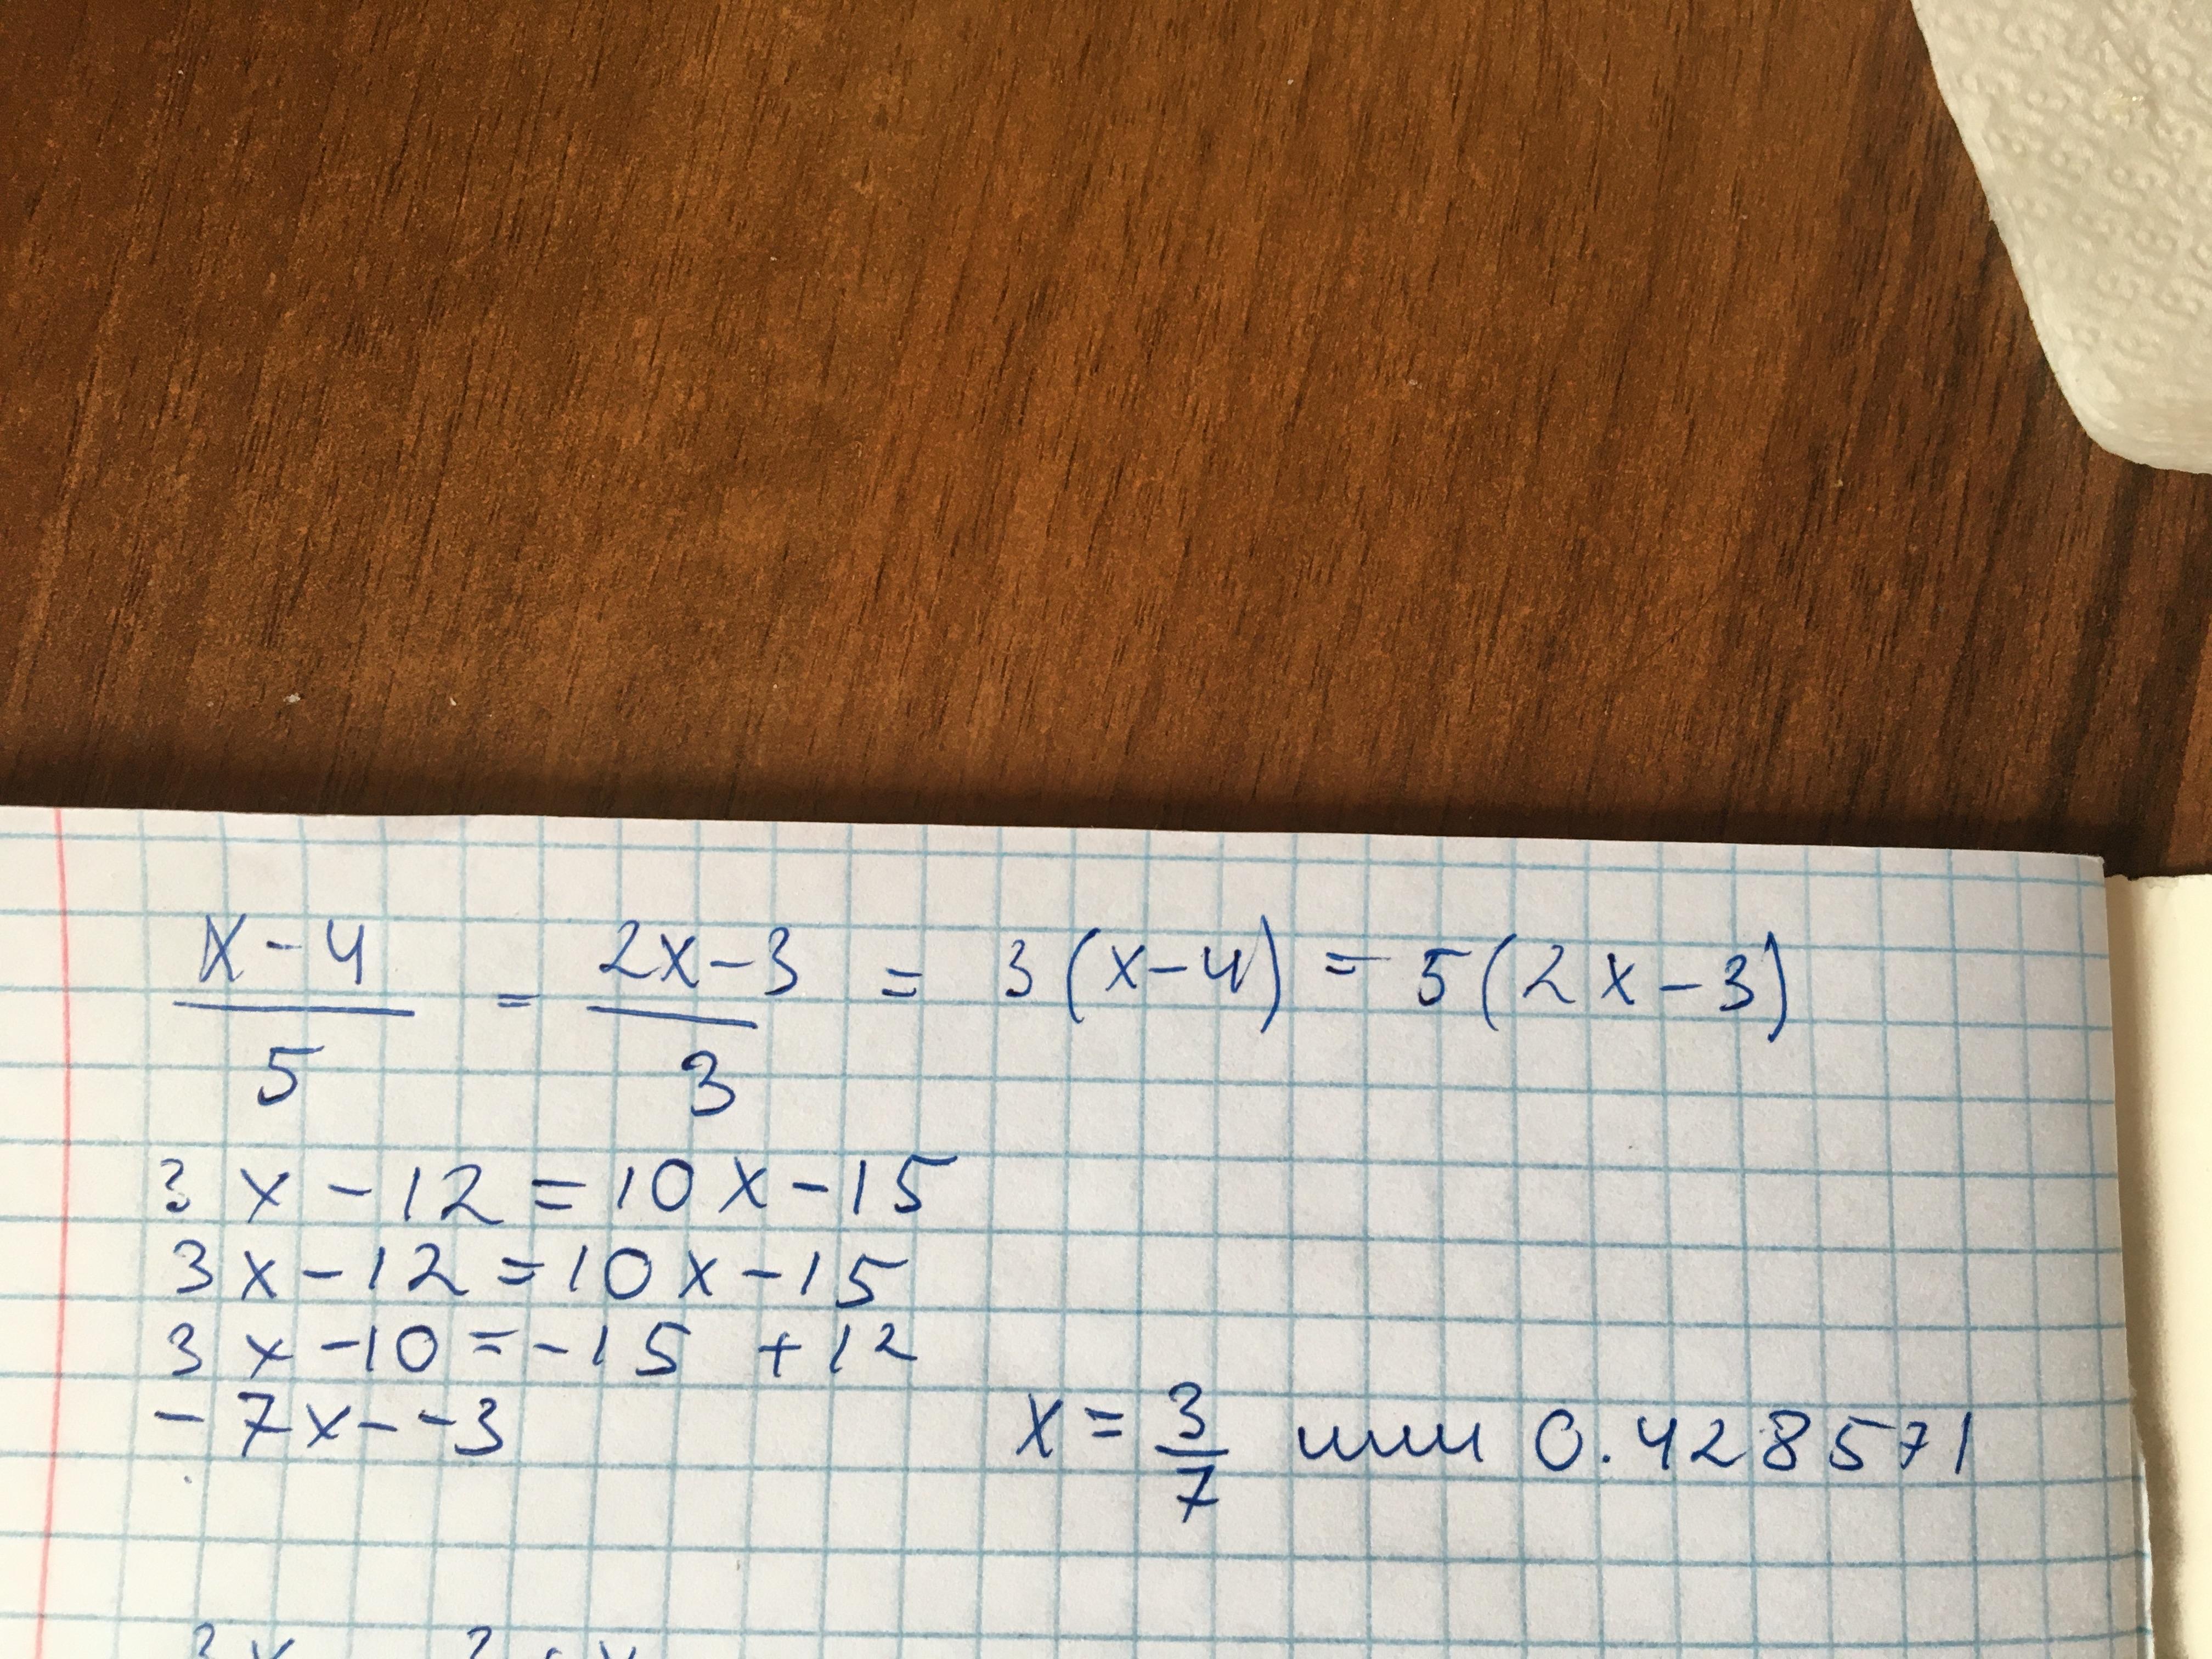 x-4/5 = 2x-3/3 = 3(x-4) = 5(2x-3)
3x-12=10x-15
3x-12=10x-15
3x-10=-15 +12
-7x--3
x = 3/7 или 0.428571